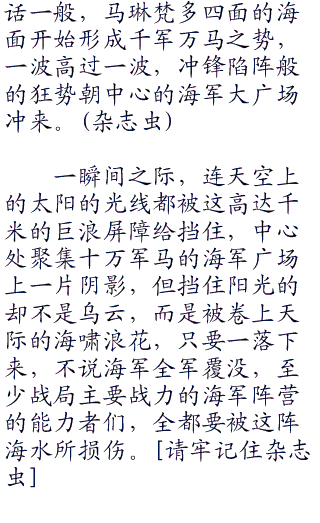 话一般，马琳梵多四面的海
面开始形成千军万马之势，
一波高过一波，冲锋陷阵般
的狂势朝中心的海军大广场
冲来。(杂志虫)
一瞬间之际，连天空上
的太阳的光线都被这高达千
米的巨浪屏障给挡住，中心
处聚集十万军马的海军广场
上一片阴影，但挡住阳光的
却不是乌云，而是被卷上天
际的海啸浪花，只要一落下
来，不说海军全军覆没，至
少战局主要战力的海军阵营
的能力者们，全都要被这阵
海水所损伤。[请牢记住杂志
虫]